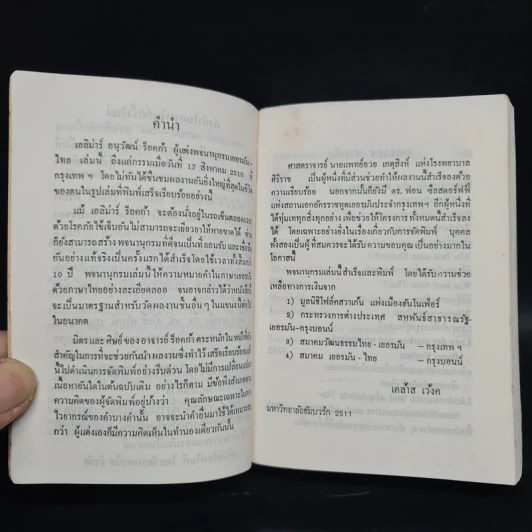 คำนำ
เอลิม่าร์ อนุวัฒน์ ร็อคก้า ผู้แต่งพจนานุกรมเยอรมัน-
ไทย เล่มนี้ ถึงแก่กรรมเมื่อวันที่ 12 สิงหาคม 2510 ที่
กรุงเทพ ฯ โดยไม่ทันได้ชื่นชมผลงานอันยิ่งใหญ่ที่สุดในชีวิต
ของตนในรูปเล่มที่พิมพ์เสร็จเรียบร้อยอย่างนี้
แม้ เอลิม่าร์ ร็อคก้า จะต้องนั่งอยู่ในรถเข็นตลอดเวลา
ด้วยโรคภัยไข้เจ็บอันไม่สามารถจะเยียวยาให้หายขาดได้ ท่าน
ก็ยังสามารถสร้าง พจนานุกรมที่ดีจนเป็นที่ยอมรับ และเชื่อถือ
กันอย่างแท้จริงเป็นครั้งแรก ได้สำเร็จโดยใช้เวลาทั้งสิ้นกว่า
10 ปี พจนานุกรมเล่มนี้ ให้ความหมายคำในภาษาเยอรมัน
ด้วยภาษาไทยอย่างละเอียดลออ จนอาจกล่าวได้ว่าหนังสือนี้
จะเป็นมาตรฐานสำหรับวัดผลงานชิ้นอื่น ๆ ในแขนงนี้ต่อไป
ในอนาคต
มิตร และศิษย์ ของ อาจารย์ ร็อคก้า ตระหนักในหน้าที่
สำคัญในการที่จะช่วยกันนำผลงานซึ่งทำไว้ เสร็จเรียบร้อยแล้ว
นี้ไปดำเนินการจัดพิมพ์อย่างรีบด่วน โดยไม่มีการเปลี่ยนแปลง
เนื้อหาอันใดในต้นฉบับเดิม อย่างไรก็ตาม มีข้อพึงสังเกตตาม
ความคิดของผู้จัดพิมพ์อยู่บ้างว่า คุณลักษณะเฉพาะในทาง
ไวยากรณ์ของคำบางคำนั้น อาจจะนำคำอื่นมาใช้ได้เหมาะสม
กว่า ผู้แต่งเองก็มีความคิดเห็นในทำนองเดียวกันนั้น
ศาสตราจารย์ นายแพทย์อวย เกตุสิงห์ แห่งโรงพยาบาล
ศิริราช เป็นผู้หนึ่งที่มีส่วนช่วยทำให้ผลงานนี้สำเร็จลงด้วย
ความเรียบร้อย นอกจากนั้นก็ยังมี ดร. ฟอน ซีลสดอร์ฟฟ์
แห่งสถานเอกอัครราชทูตเยอรมันประจำกรุงเทพ ฯ อีกผู้หนึ่งที่
ได้ทุ่มเททุกสิ่งทุกอย่าง เพื่อช่วยให้โครงการทั้งหมดนี้สำเร็จลง
ได้ โดยเฉพาะอย่างยิ่งในเรื่องเกี่ยวกับการจัดพิมพ์ บุคคล
ทั้งสองเป็นผู้ที่สมควรจะได้รับความขอบคุณ เป็นอย่างมากใน
โอกาสนี้
พจนานุกรมเล่มนี้สำเร็จและพิมพ์ โดยได้รับความช่วย
เหลือทางการเงินจาก
๑) มูลนิธิโฟล์คสวาเก้น แห่งเมืองฮันโนเฟอร์
๒) กระทรวงการต่างประเทศ สหพันธ์สาธารณรัฐ-
เยอรมัน-กรุงบอนน์
๓) สมาคมวัฒนธรรมไทย-เยอรมัน — กรุงเทพ ฯ
๔) สมาคม เยอรมัน - ไทย — กรุงบอนน์
เคล้าส เว้งค
มหาวิทยาลัยฮัมบวร์ก 2511